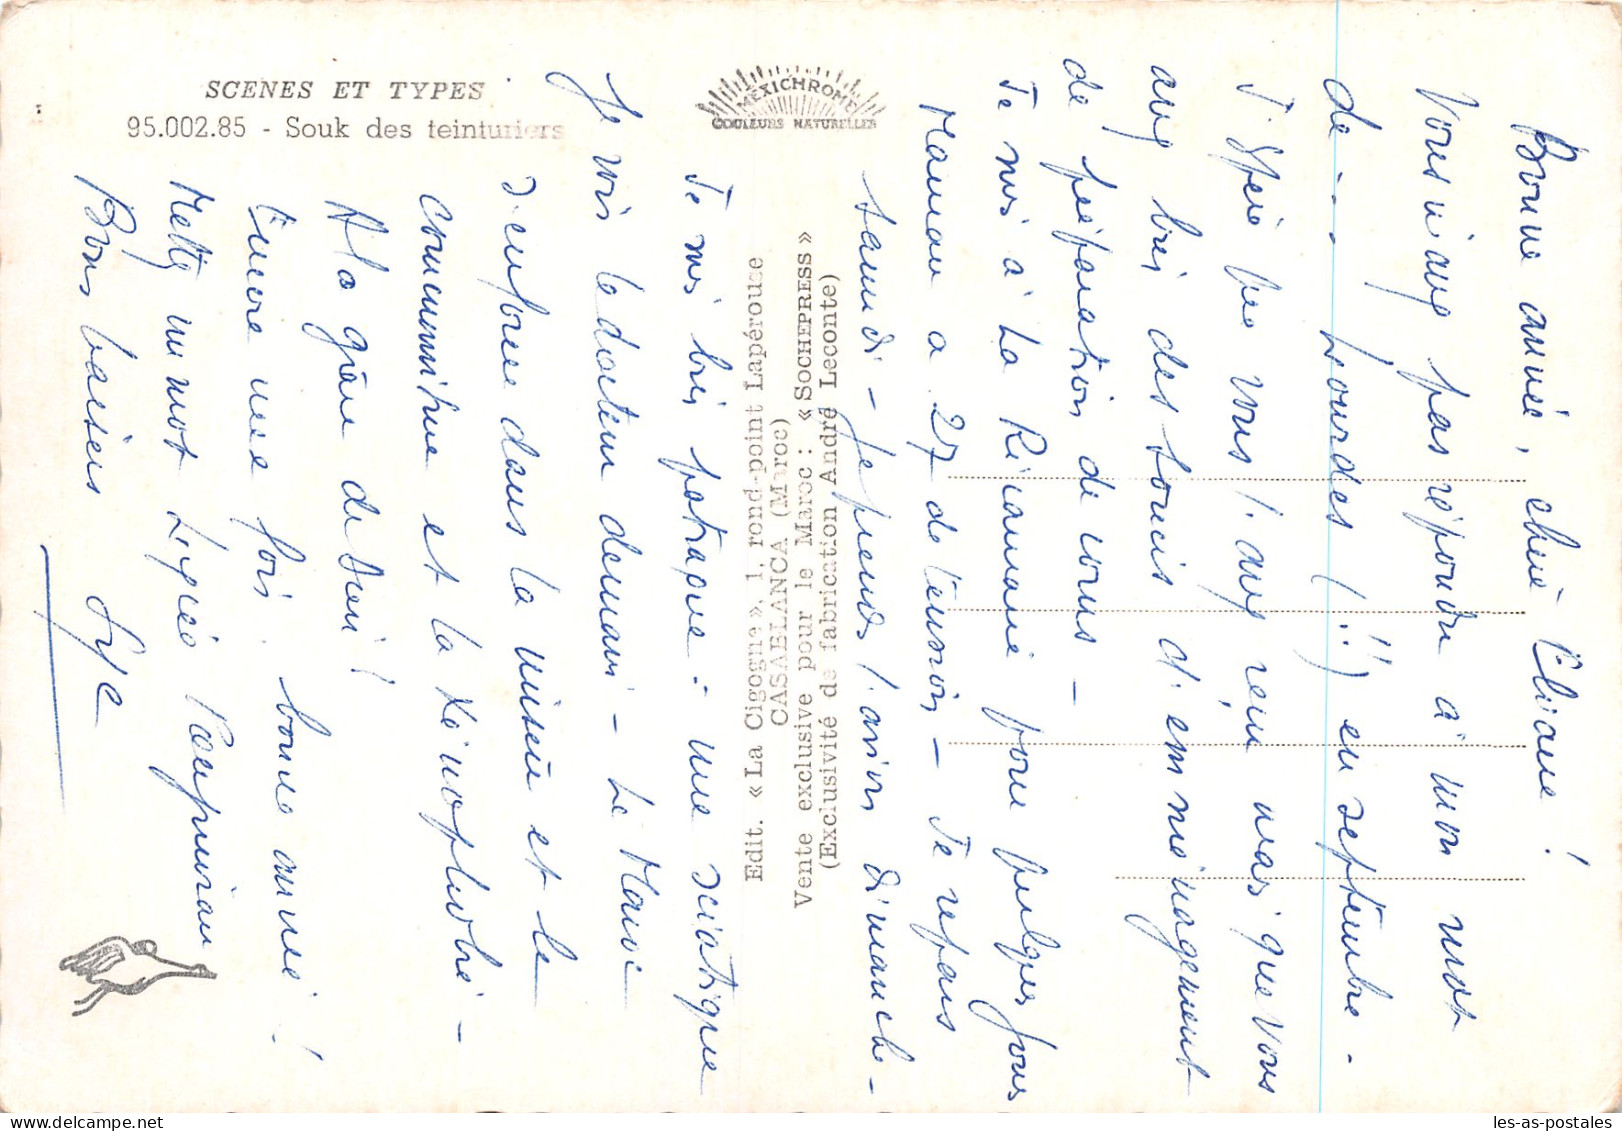 SCENES ET TYPES
95.002.85 - Souk des teinturiers
MEXICHROME
COULEURS NATURELLES
Edit. « La Cigogne », 1, rond-point Lapérouse
CASABLANCA (Maroc)
Vente exclusive pour le Maroc : « SOCHEPRESS »
(Exclusivité de fabrication André Leconte)
Bonne année, chère Eliane !
Vous n'avez pas répondu à mon mot
de - - Lourdes (!!) en septembre -
J'espère que vous n'avez rien mais que vous
avez bien des soucis d'emménagement
de préparation de cours -
Je suis à La Réumanie pour quelques jours
Maman a 27 de tension - Je repars
samedi - Je prends l'avion dimanche -
Je suis très patraque : une sciatique
Je vois le docteur demain - Le Maroc
s'enfonce dans la misère et le
communisme et la xénophobie -
A la grâce de Dieu !
Encore une fois bonne année !
Mettez un mot Lycée
Bons baisers
les-as-postales